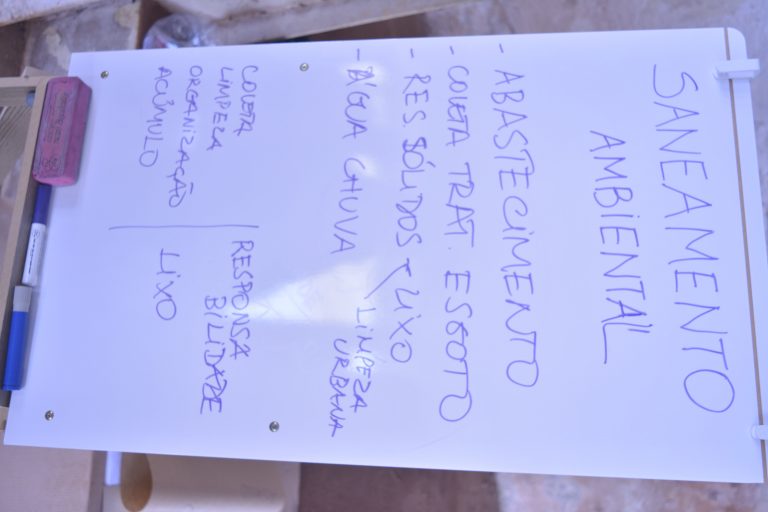 SANEAMENTO
AMBIENTAL
- ABASTECIMENTO
- COLETA TRAT. ESGOTO
- RES. SÓLIDOS LIXO
LIMPEZA
URBANA
- ÁGUA CHUVA
COLETA
LIMPEZA
ORGANIZAÇÃO
ACÚMULO
RESPONSA
BILIDADE
LIXO